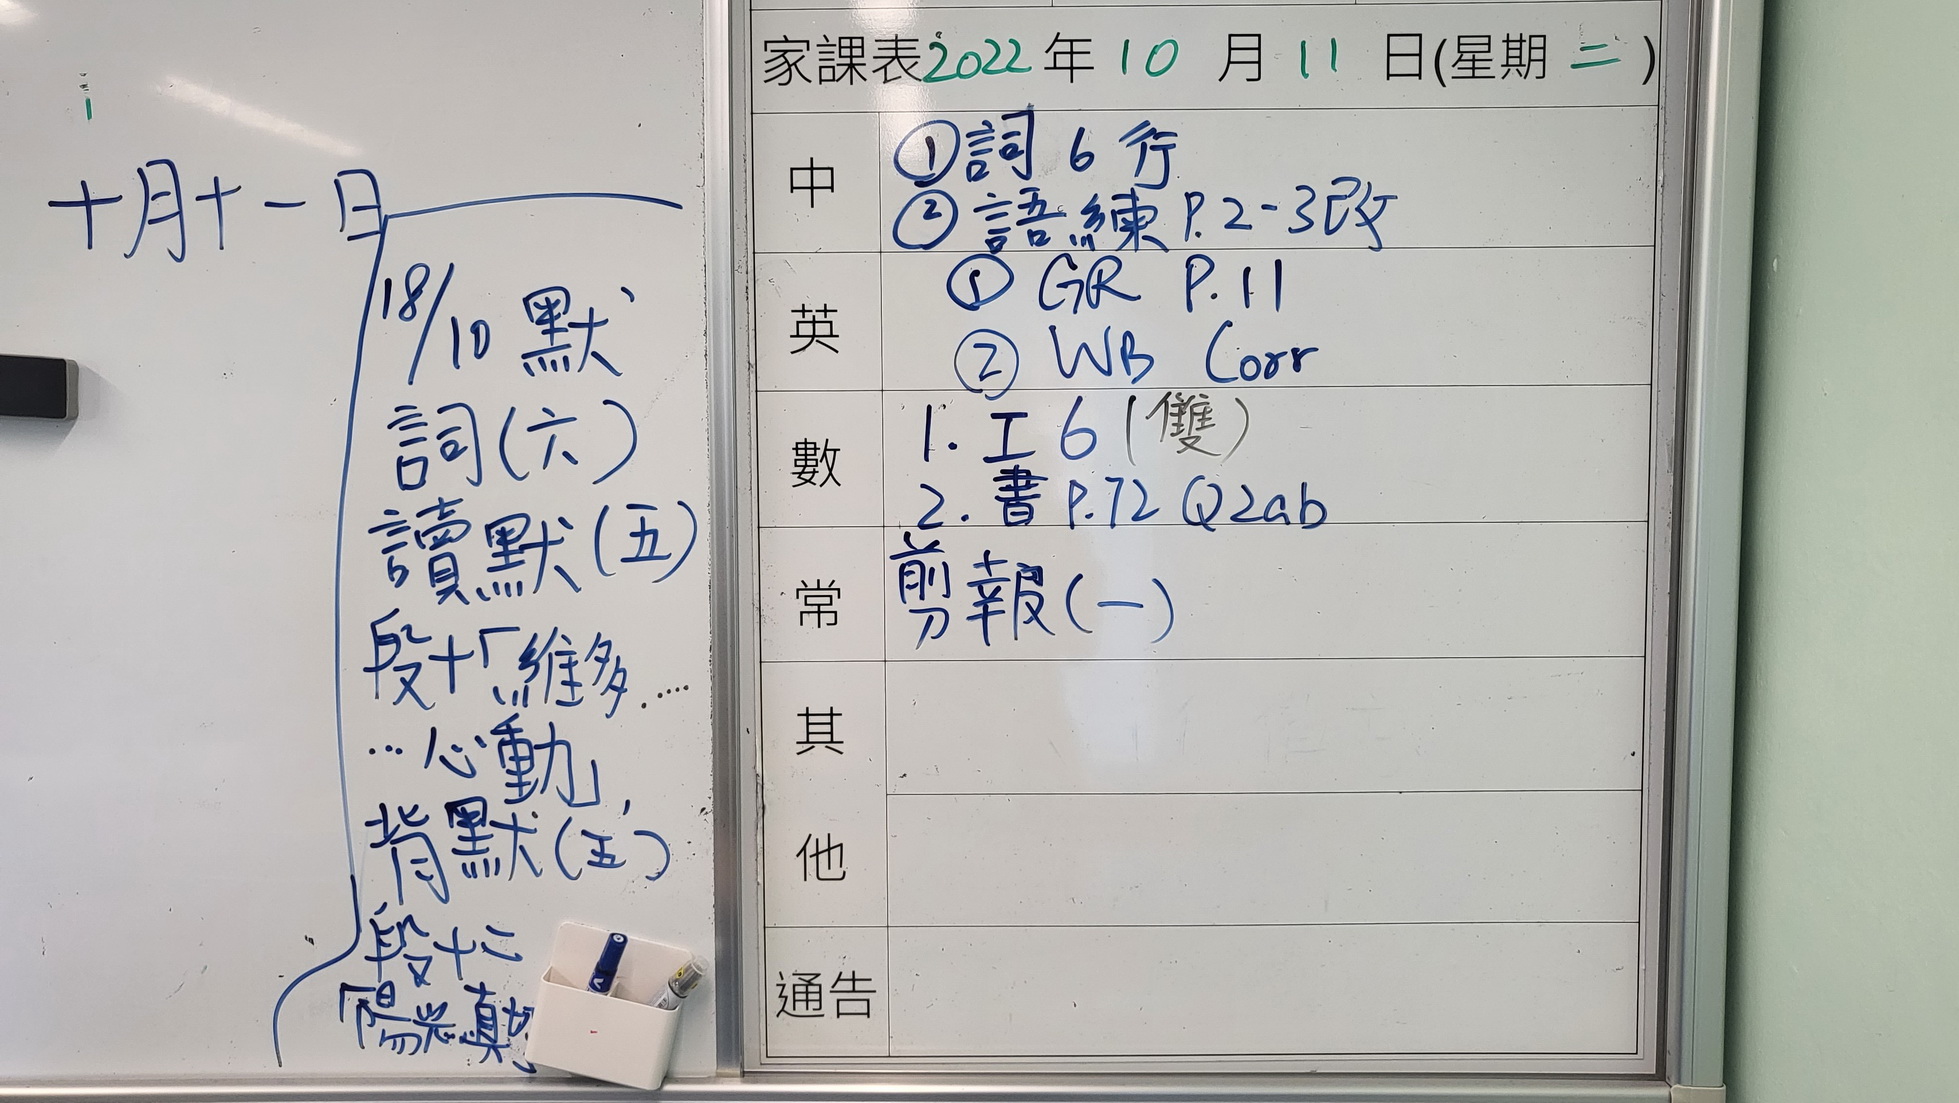 十月十一日
18/10 默
詞(六)
讀默(五)
段十「維多....
...心動」
背默(五)
段十二
「陽光真
家課表2022年10月11日(星期二)
中
①詞6行
②語練P.2-3改
英
① GR P.11
② WB Corr
數
1. 工6(雙)
2. 書P.72 Q2ab
常
剪報(一)
其
他
通告